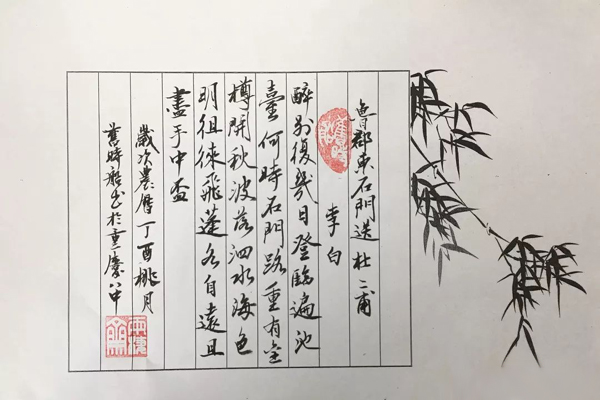 魯郡東石門送杜二甫
李白
醉別復幾日登臨遍池
臺何時石門路重有金
樽開秋波落泗水海色
明徂徠飛蓬各自遠且
盡手中盃
歲次農曆丁酉桃月
舊時船书於重慶八中